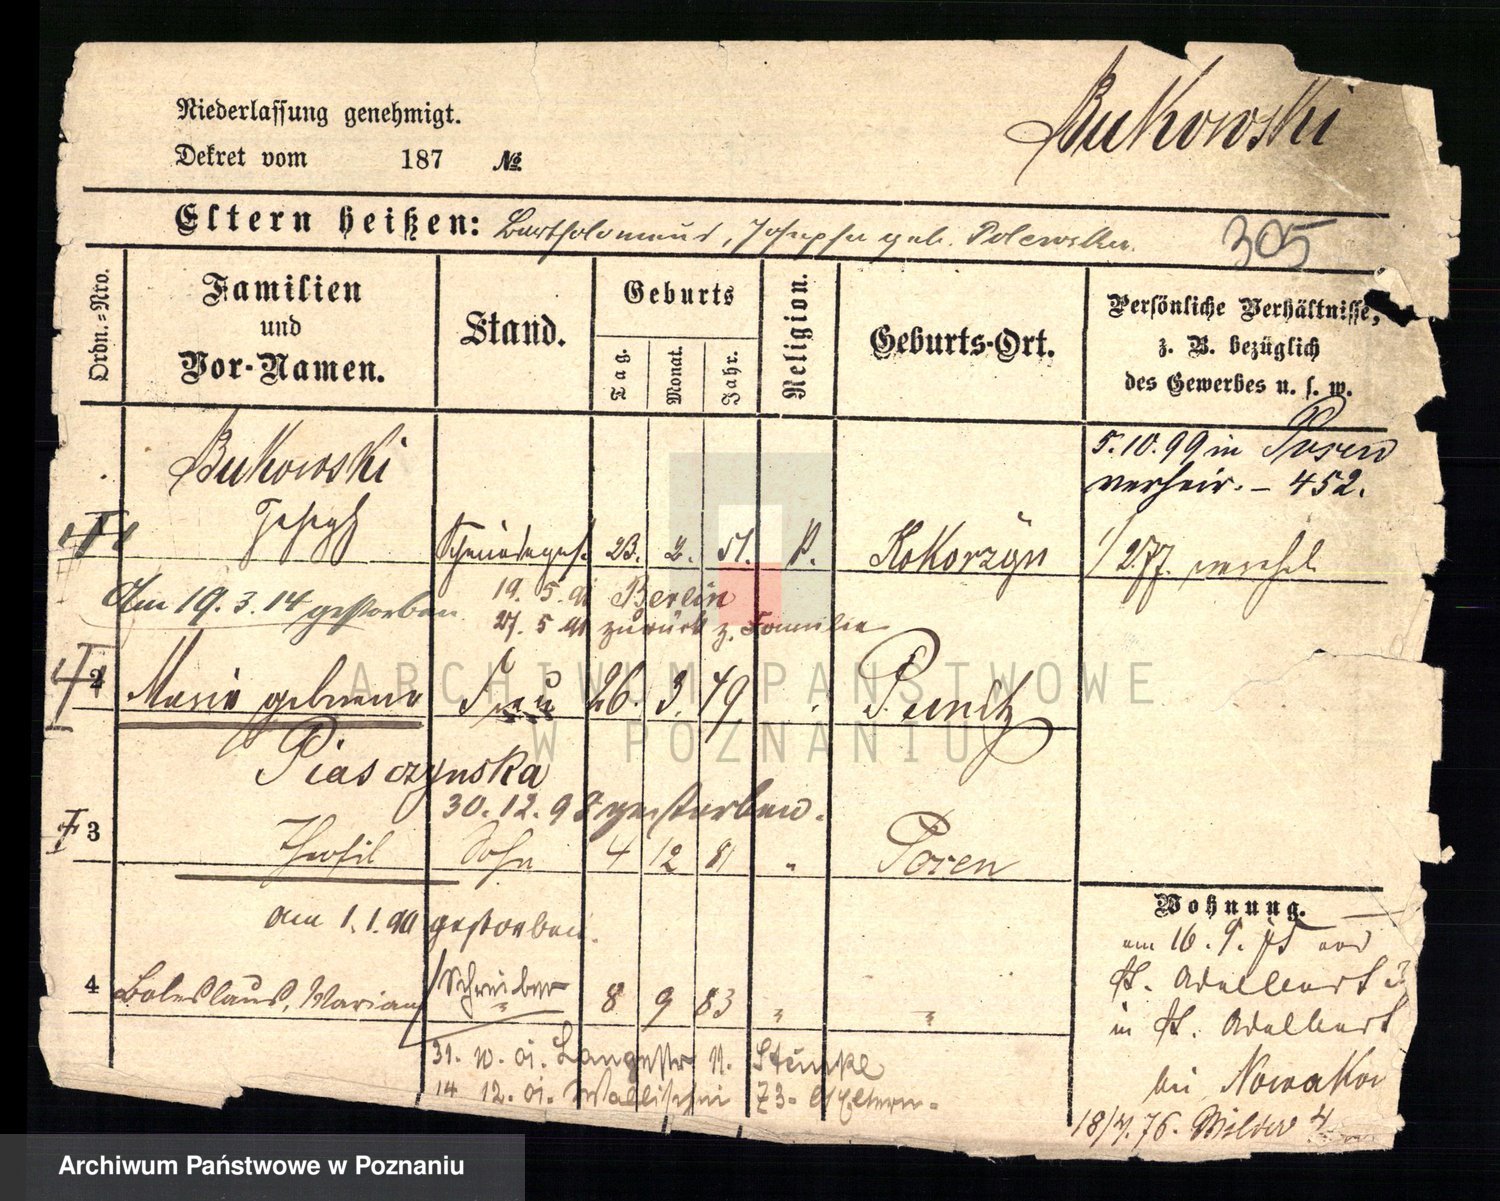 Niederlassung genehmigt.
Dekret vom 187 №
Bukowski
Eltern heißen: Bartholomeus, Josepha geb. Polewska.
305
Ordn.-Nro.
Familien
und
Vor-Namen.
Stand.
Geburts
Tag.
Monat.
Jahr.
Religion.
Geburts-Ort.
Persönliche Verhältnisse,
z. B. bezüglich
des Gewerbes u. s. w.
Bukowski
Joseph
23. 2. 51.
Kokorzyn
5.10.99 in Posen
verheir. – 452.
1/2.77.
Am 19.3.14 gestorben
19. 5. Berlin
27. 5 zurück z. Familie
2 Marie geborene Frau 26. 3. 49.
Piasczynska
30.12.98 gestorben.
3 Theofil Sohn 4 12 81 " Posen
am 1.1.90 gestorben.
4 Boleslaus, Marian Schreiber 8 9 83 " "
31. 10. 01. Langestr 11. Stünkel
14 12. 01. Wallischei 73. Eltern.
Wohnung.
am 16. 9.
St. Adelbert 3
in St. Adelbert
bei Nowakow
18/4.76. Wilder 4
ARCHIWUM PAŃSTWOWE
W POZNANIU
Archiwum Państwowe w Poznaniu